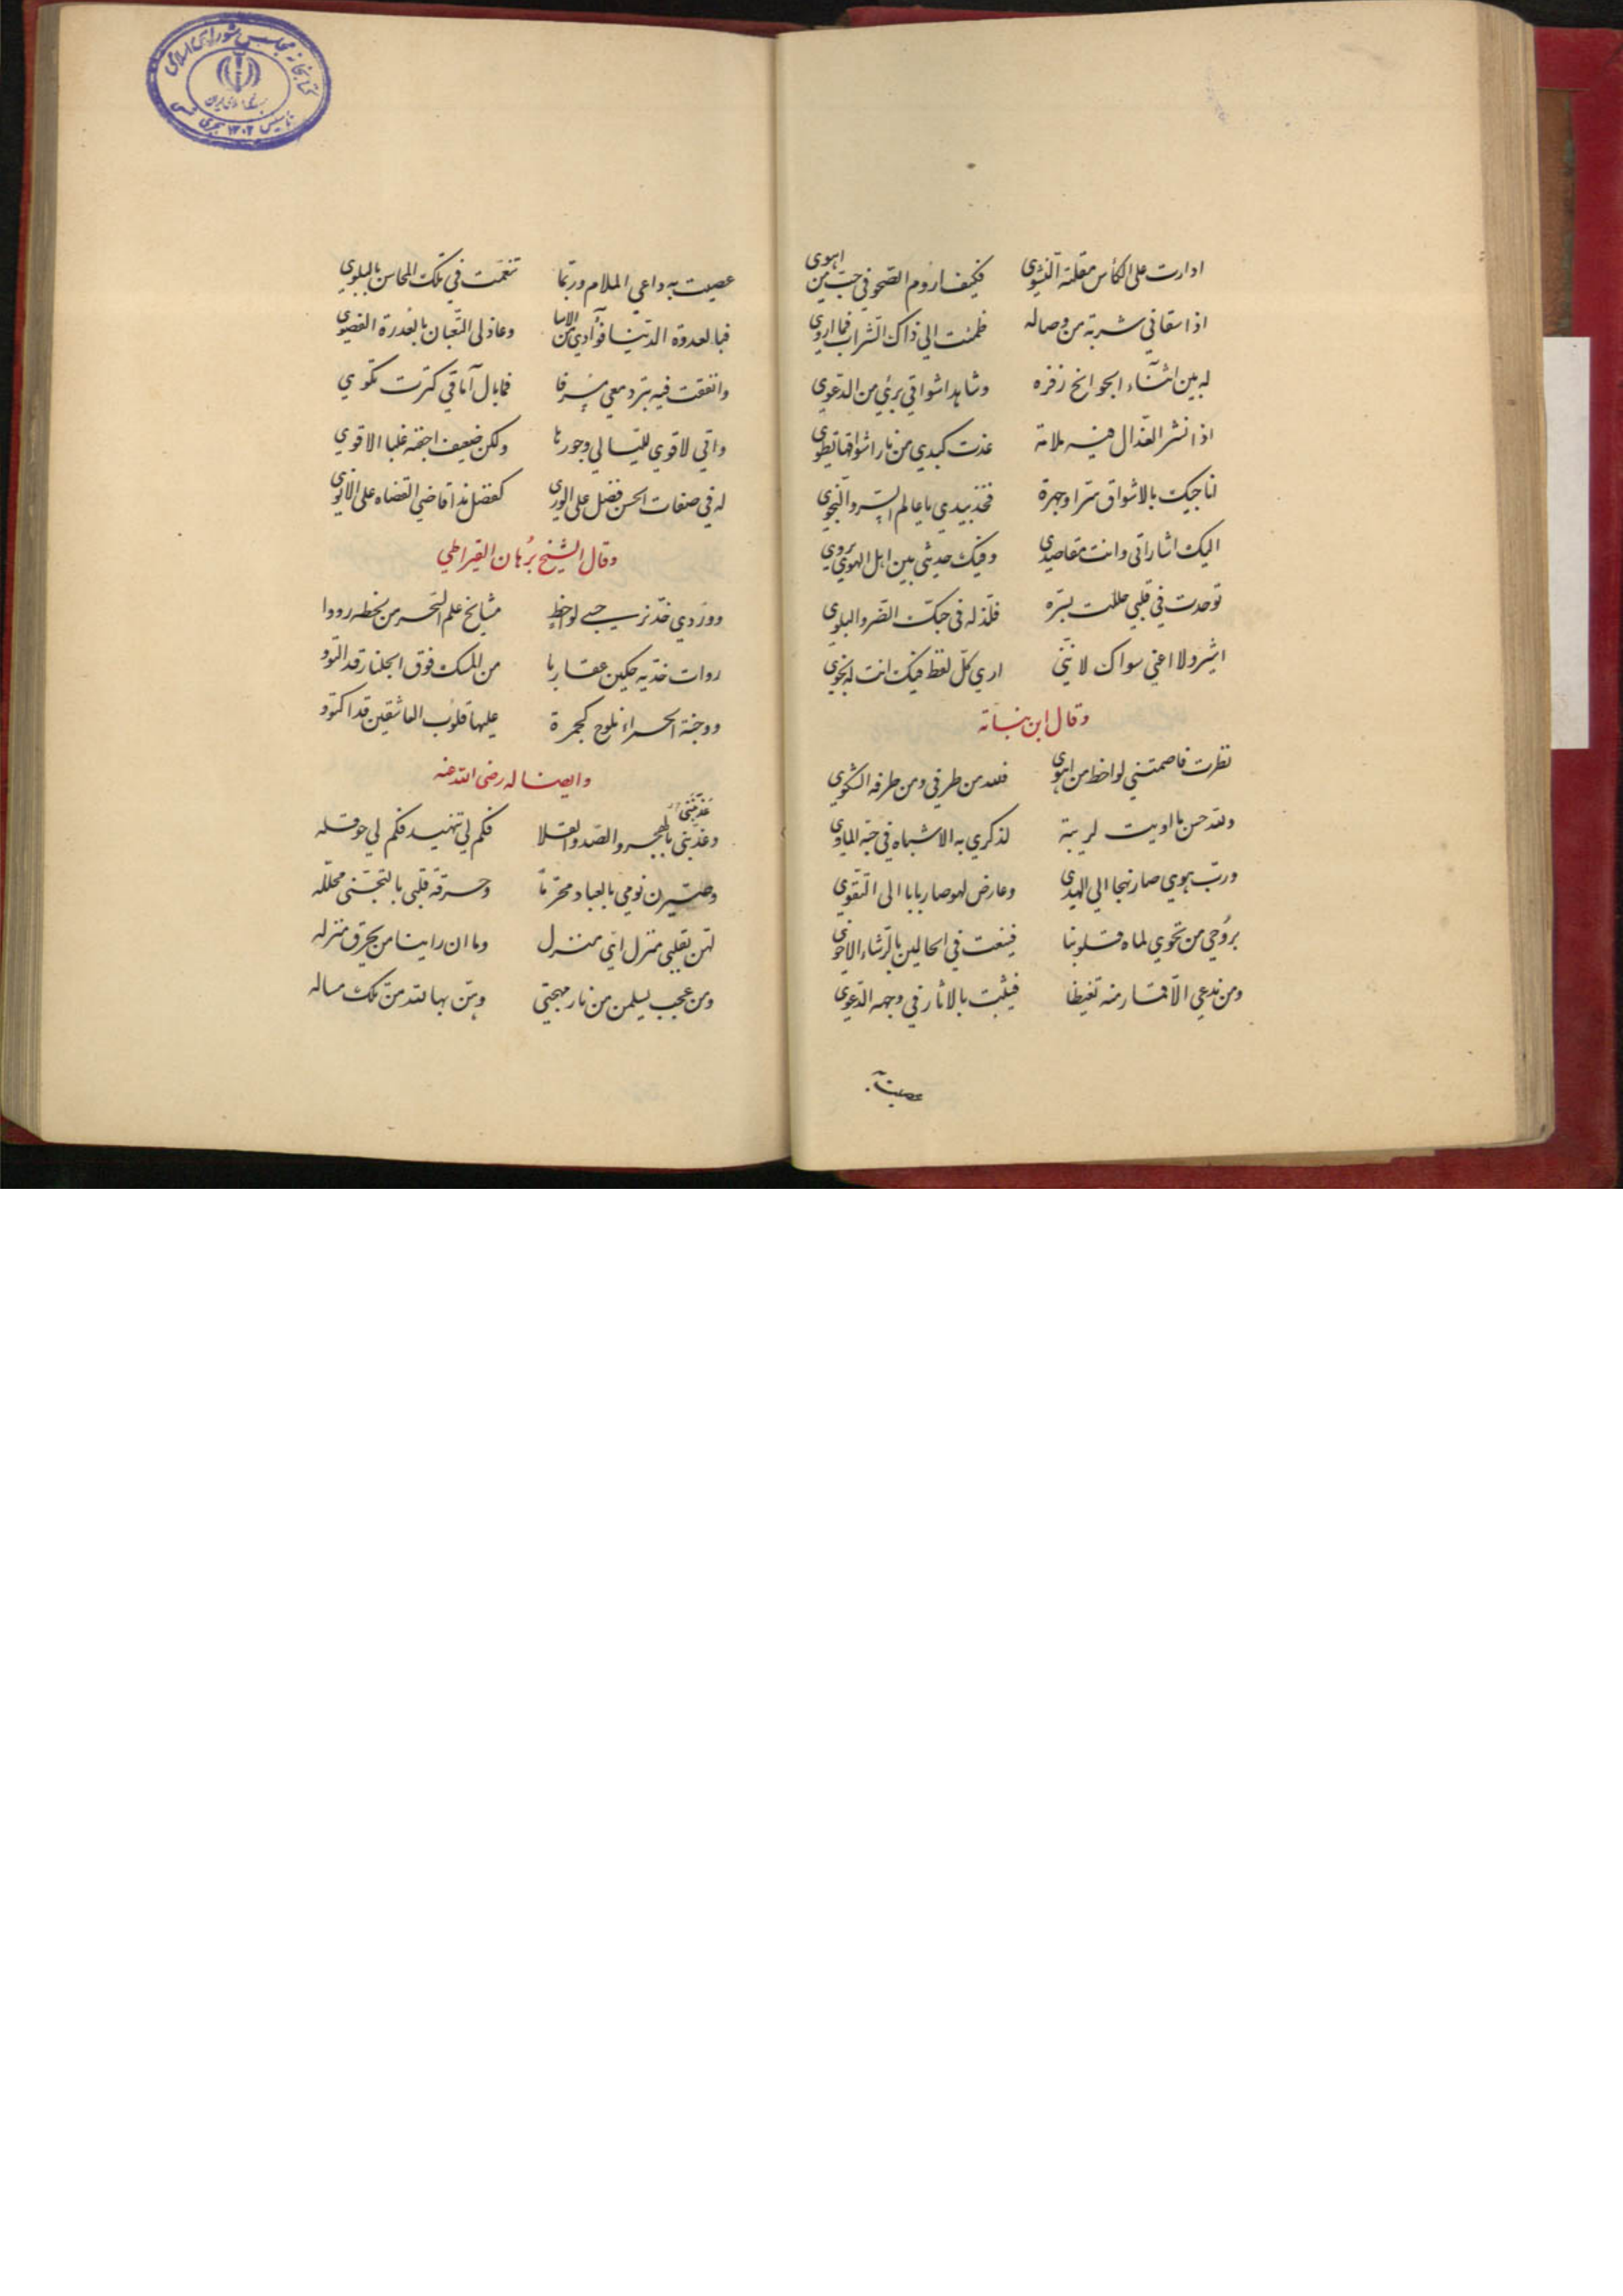 ادارت على الكأس مقلة النشوى فكيف اروم الصحو في حب من اهوى
اذا سقاني شربة من وصاله ظمئت الى ذاك الشراب فما اروى
له بين اثناء الجوانح زفره وشاهد اشواقي بريء من الدعوى
اذا نشر العذال فيه ملامة غدت كبدي من نار اشواقها تطوى
اناجيك بالاشواق سرا وجهرة فخذ بيدي يا عالم السر والنجوى
اليك اشاراتي وانت مقاصدي وفيك حديثي بين اهل الهوى يروى
توحدت في قلبي حللت بسره فلذ له في حبك الضر والبلوى
اشير ولا اعني سواك لانني ارى كل لفظ فيك انت له نجوى
وقال ابن نباتة
نظرت فاصمتني لواحظ من اهوى فلله من طرفي ومن طرفه الشكوى
ولله حسن ما اويت لريبة لذكرى به الاشباه في جنة الماوى
ورب هوى صار نهجا الى الهدى وعارض لهو صار بابا الى التقوى
بروحي من تحوي لماه قلوبنا فينعت في الحالين بالرشاء الاحوى
ومن ندعى الاقمار منه تغيظا فيثبت بالاثار في وجهه الدعوى
عصيت به
عصيت به داعي الملام وربما تنعمت في تلك المحاسن بالبلوى
فبالعدوة الدنيا فؤادي من الاسا وعاذلي التعبان بالعدوة القصوى
وانفقت فيه تبر دمعي مسرفا فما بال آماقي كنزت تكوى
واني لاقوى لليالي وجورها ولكن ضعيف اجفنه غلبا الاقوى
له في صفات الحسن فضل على الورى كفضل ندا قاضي القضاه على الانوى
وقال الشيخ برهان القيراطي
ووردي خد نرجسي لواحظ مشايخ علم السحر من لحظه رووا
وواوات خديه حكين عقاربا من المسك فوق الجلنار قد التووا
ووجنة الحمراء تلوح كجمرة عليها قلوب العاشقين قد اكتووا
وايضا له رضى الله عنه
وعذبني بالهجر والصد والقلا فكم لي تنهيد فكم لي حوقله
عذبنني
وصيرن نومي بالبعاد محرما وحرقة قلبي بالتجني محلله
لهن بقلبي منزل اي منزل وما ان راينا من يحرق منزله
ومن عجب يسلمن من نار مهجتي وهن بها لله من تلك مساله
كتابخانه مجلس شورای اسلامی
جمهوری اسلامی ایران
تاسیس ۱۳۰۲ هجری شمسی